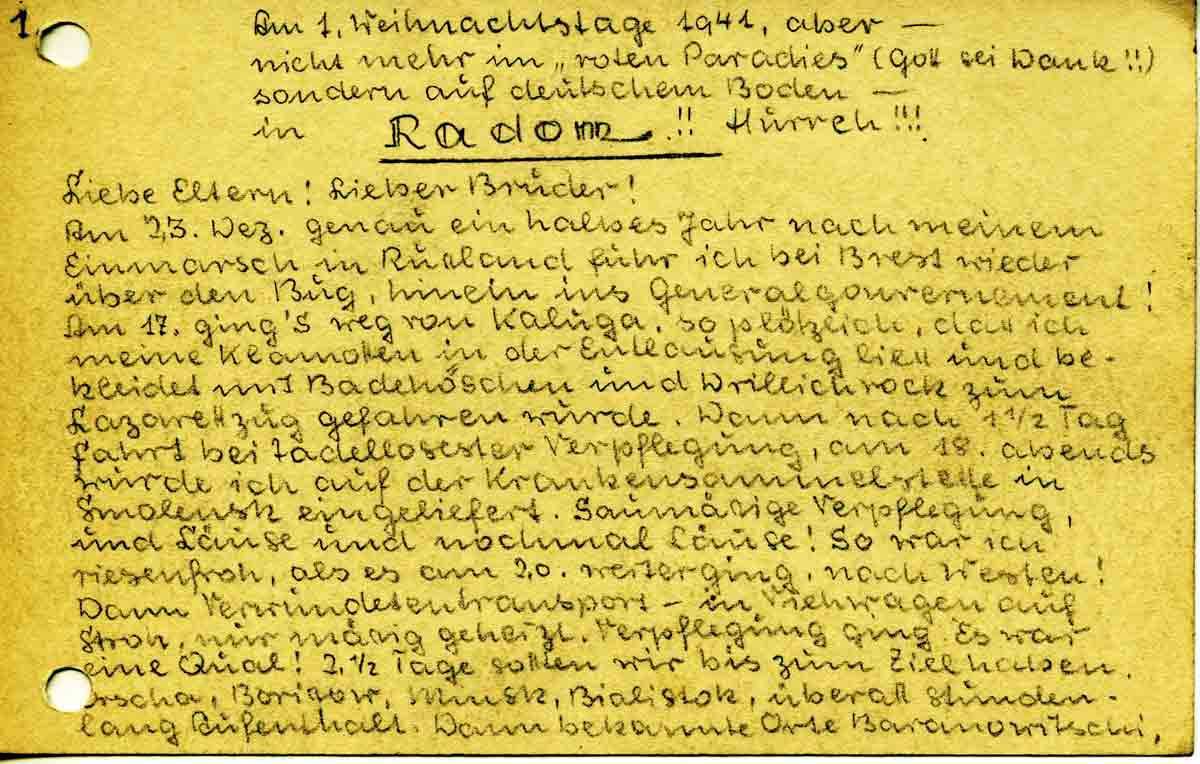 1.
Am 1. Weihnachtstage 1941, aber —
nicht mehr im „roten Paradies" (Gott sei Dank!!)
sondern auf deutschem Boden —
in Radom!! Hurreh!!!
Liebe Eltern! Lieber Bruder!
Am 23. Dez. genau ein halbes Jahr nach meinem
Einmarsch in Rußland fuhr ich bei Brest wieder
über den Bug, hinein ins Generalgouvernement!
Am 17. ging's weg von Kaluga, so plötzlich, daß ich
meine Klamotten in der Entlausung ließ und be-
kleidet mit Badehöschen und Drillichrock zum
Lazarettzug gefahren wurde. Dann nach 1 1/2 Tag
fahrt bei tadellosester Verpflegung, am 18. abends
wurde ich auf der Krankensammelstelle in
Smolensk eingeliefert. Saumäßige Verpflegung,
und Läuse und nochmal Läuse! So war ich
riesenfroh, als es am 20. weiterging, nach Westen!
Dann Verwundetentransport – in Viehwagen auf
Stroh, nur mäßig geheizt. Verpflegung ging. Es war
eine Qual! 2 1/2 Tage sollten wir bis zum Ziel haben.
Orscha, Borissow, Minsk, Bialistok, überall stunden-
lang Aufenthalt. Dann bekannte Orte Baranowitschi,